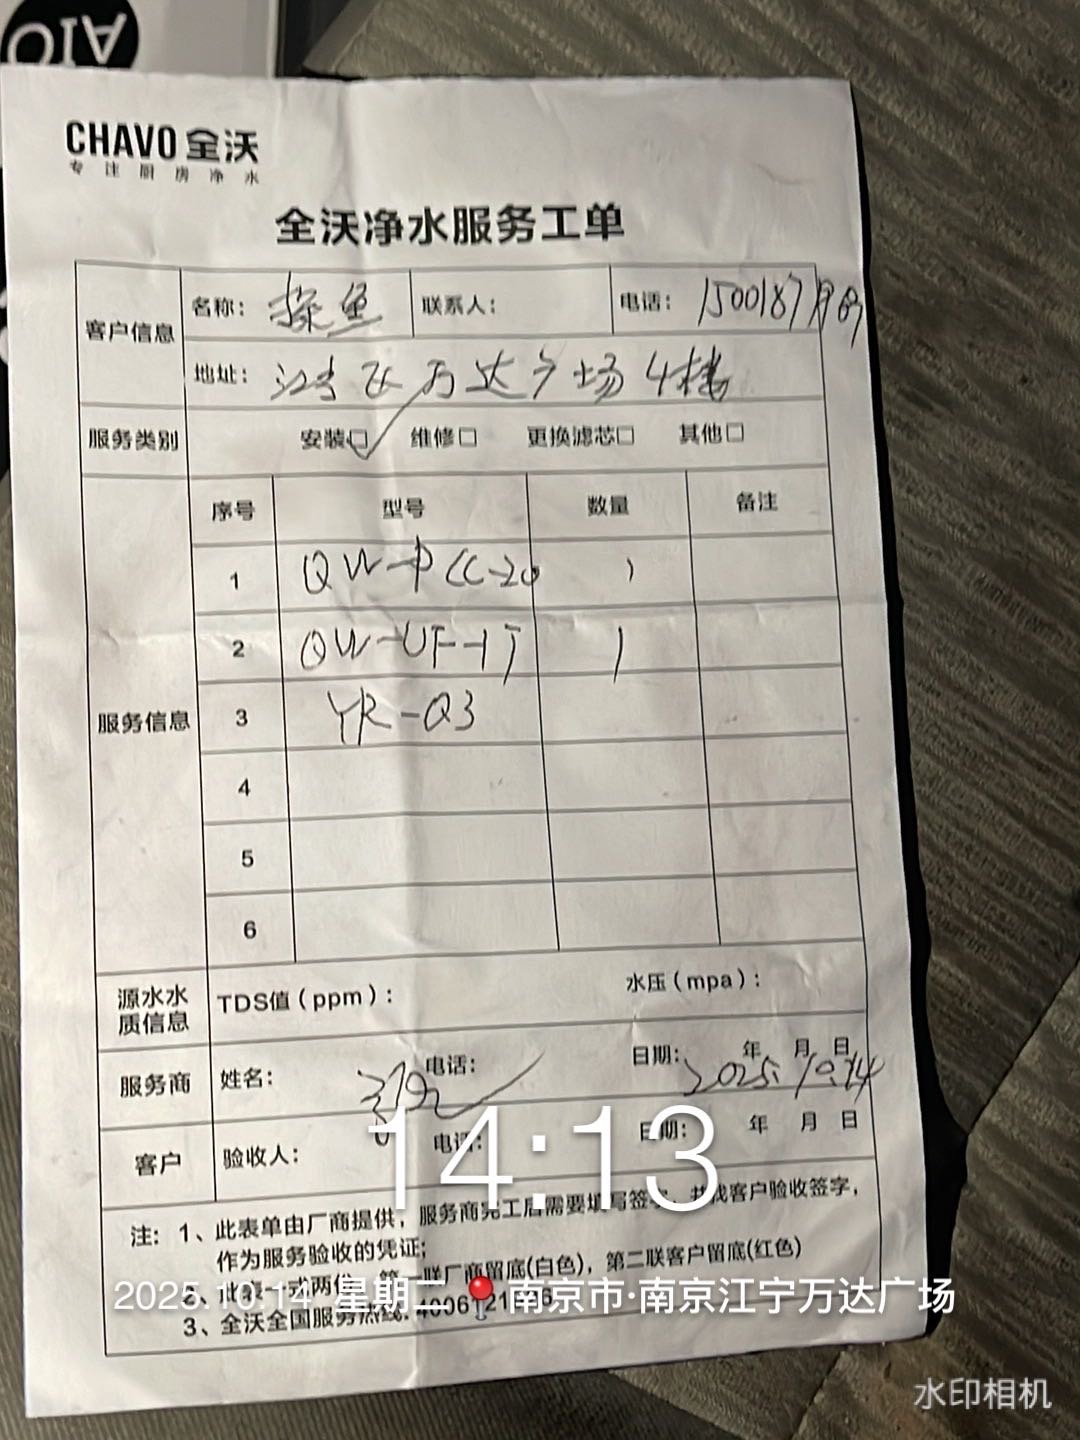 OIA
CHAVO 全沃
专注厨房净水
全沃净水服务工单
客户信息
名称： 探鱼
联系人：
电话： 1500187
地址： 江宁区万达广场4楼
服务类别
安装☑ 维修□ 更换滤芯□ 其他□
服务信息
序号 型号 数量 备注
1 QW-PCC-20 1
2 QW-UF-1T 1
3 YR-Q3
4
5
6
源水水质信息
TDS值（ppm）： 水压（mpa）：
服务商
姓名： 电话： 日期： 年 月 日
2025.10.14
客户
验收人： 电话： 日期： 年 月 日
14:13
注：1、此表单由厂商提供，服务商完工后需要填写签字，并找客户验收签字，
作为服务验收的凭证；
2、此表一式两份，第一联厂商留底(白色)，第二联客户留底(红色)
3、全沃全国服务热线：4006
2025.10.14 星期二 南京市·南京江宁万达广场
水印相机